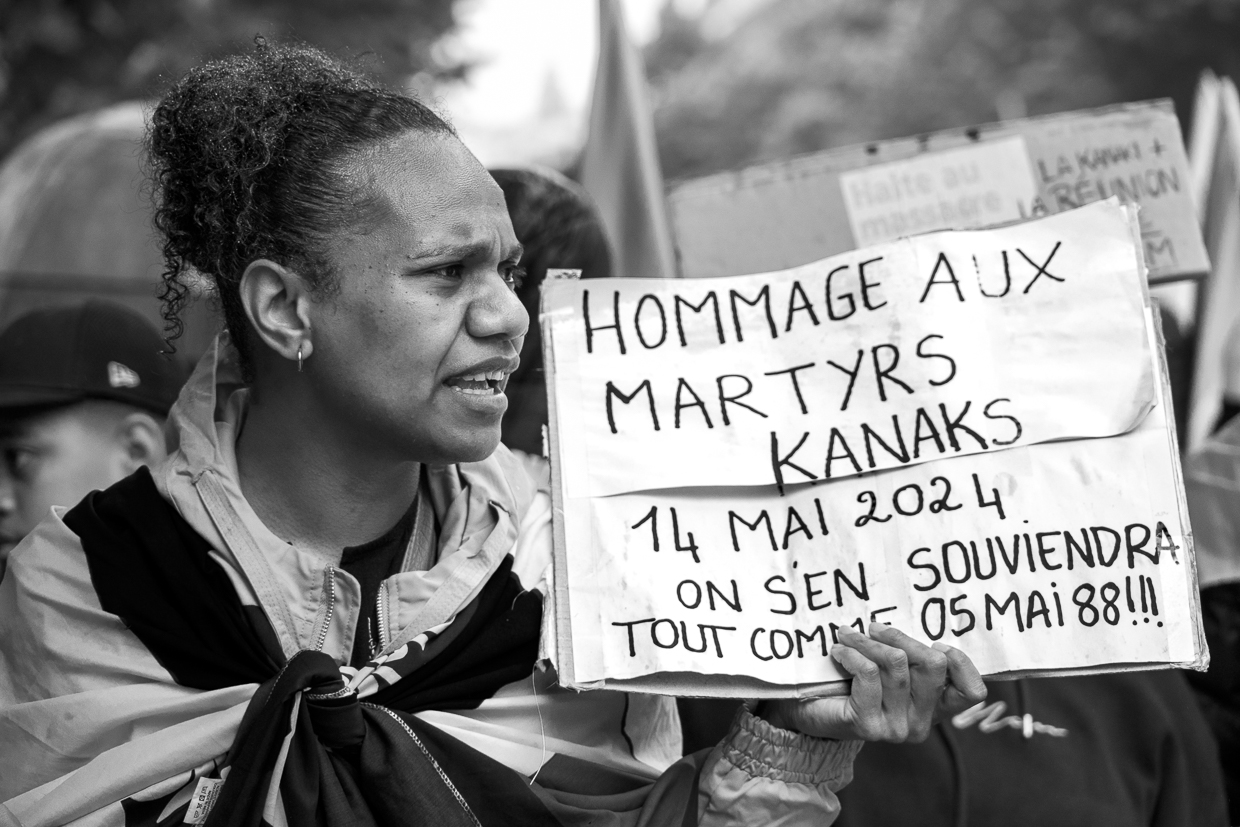 HOMMAGE AUX
MARTYRS
KANAKS
14 MAI 2024
ON S'EN SOUVIENDRA
TOUT COMME 05 MAI 88!!!
Halte au
massacre
LA KANAKI +
LA RÉUNION